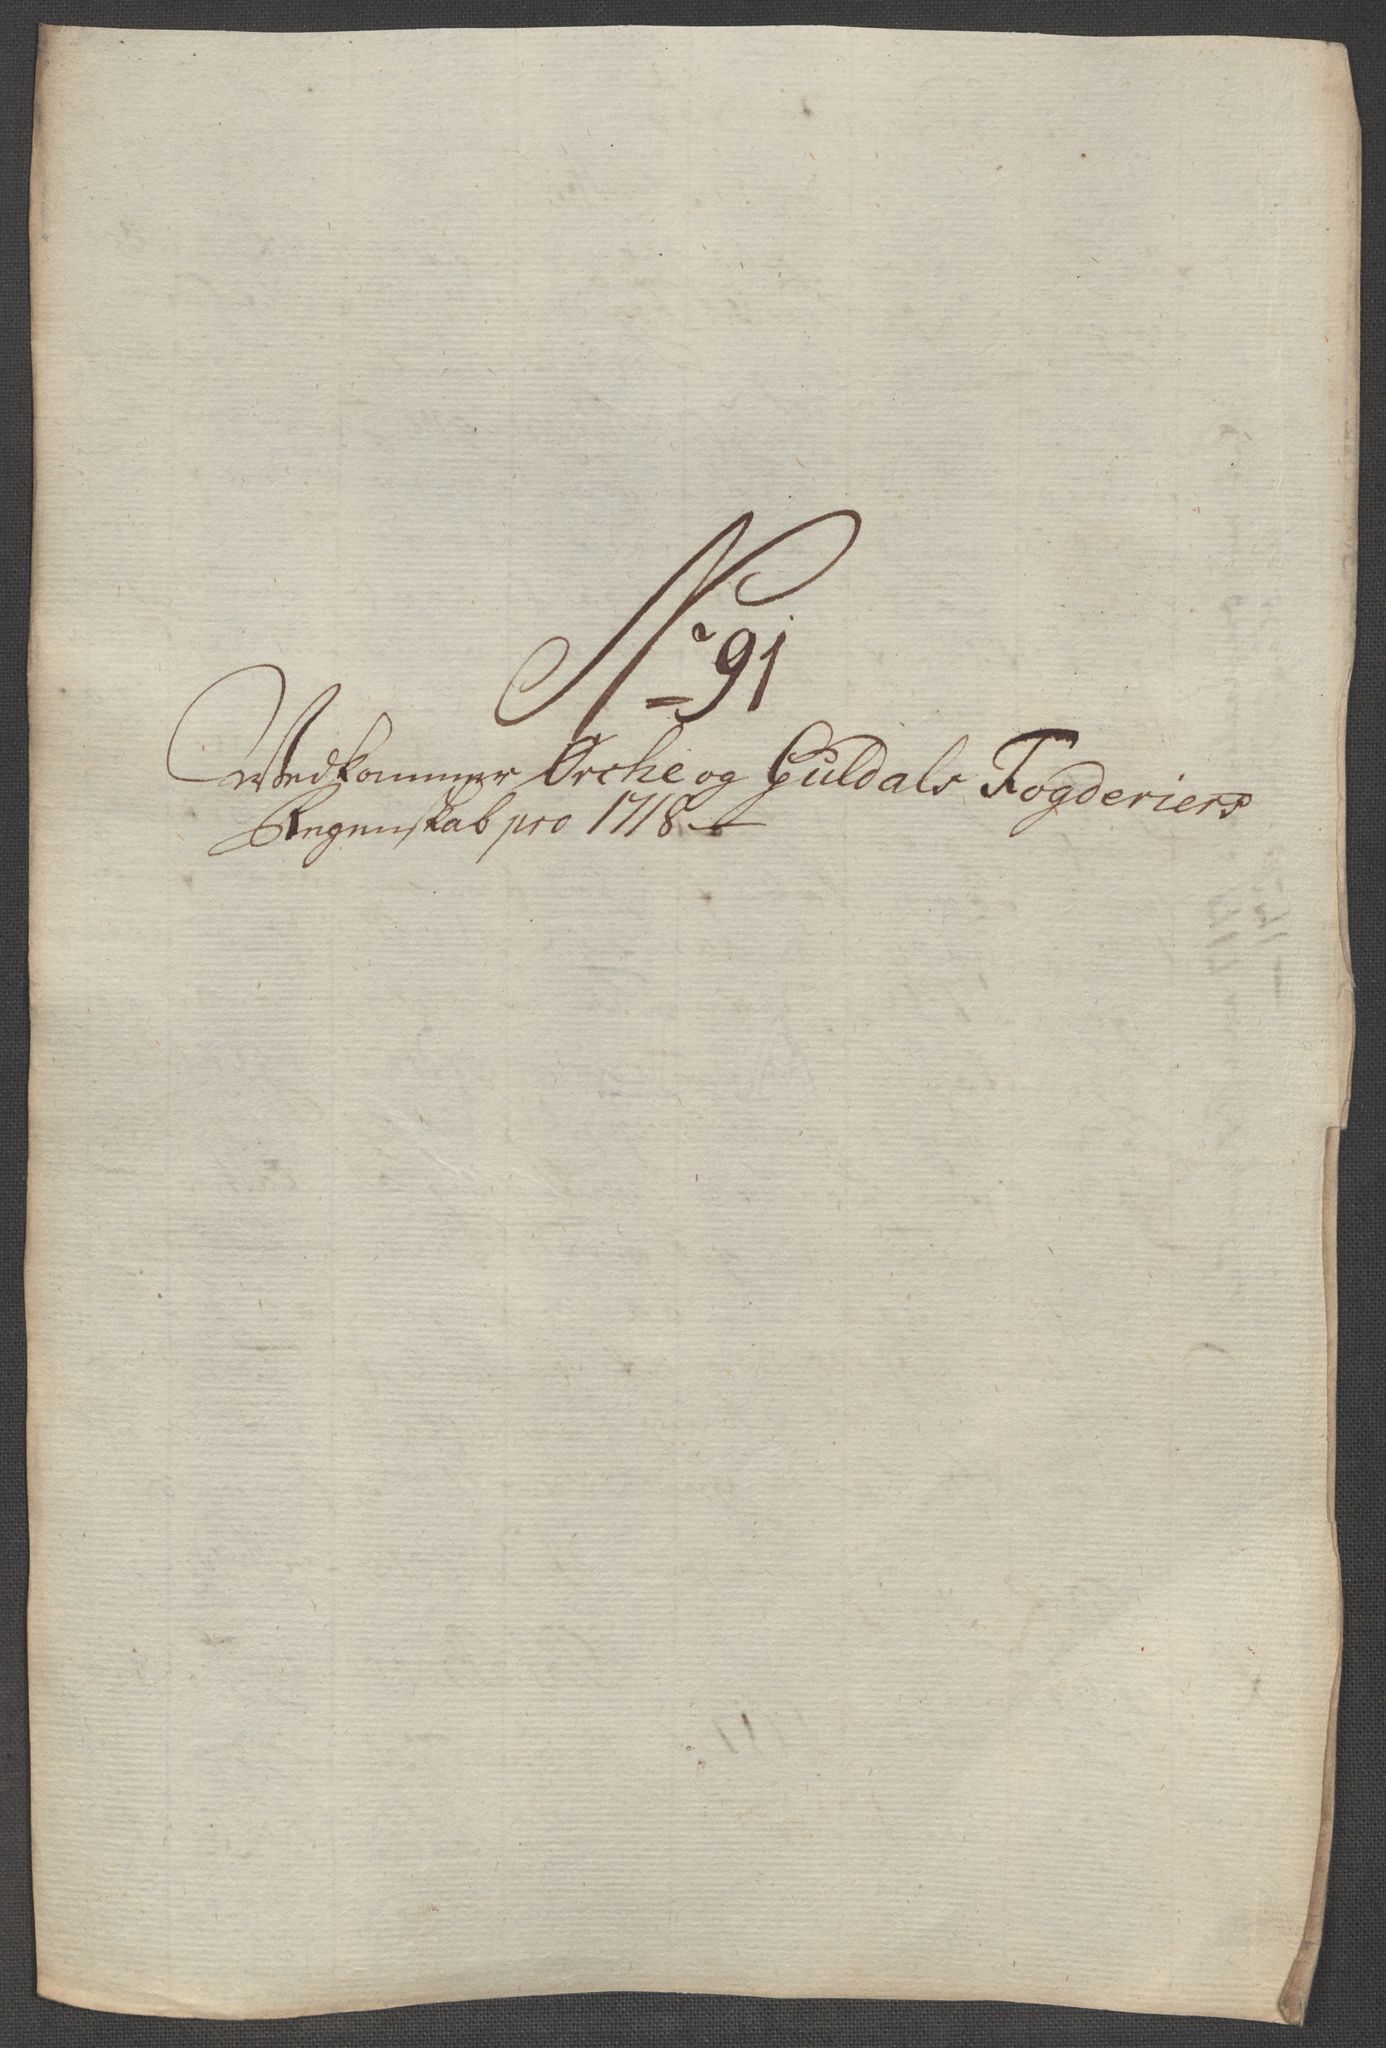 No 91
Vedkommer Ørche og Guldals Fogderiers
Regenskab pro 1718